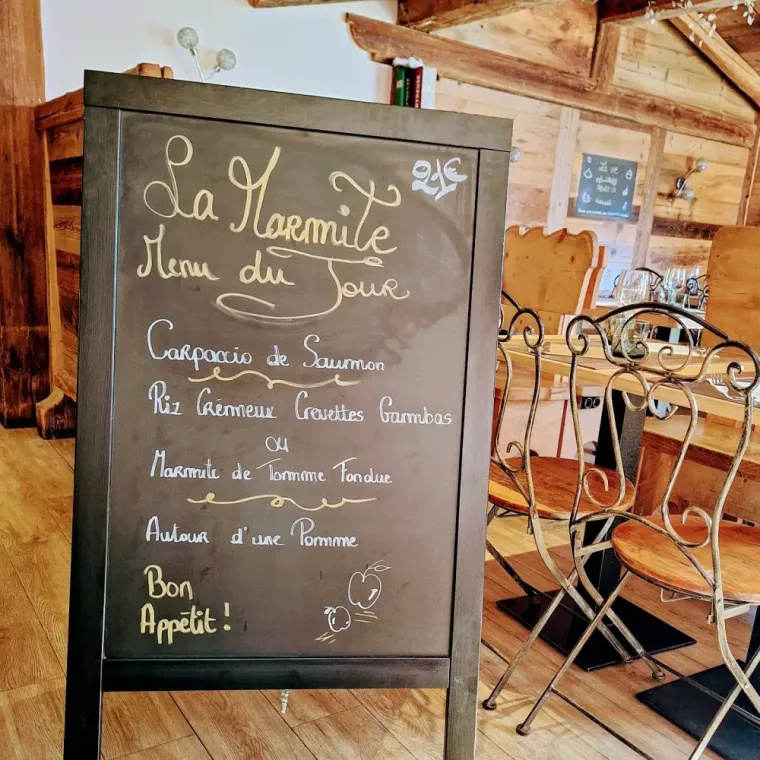 21€
La Marmite
Menu du Jour
Carpaccio de Saumon
Riz Crémeux Crevettes Gambas
ou
Marmite de Tomme Fondue
Autour d'une Pomme
Bon
Appétit !